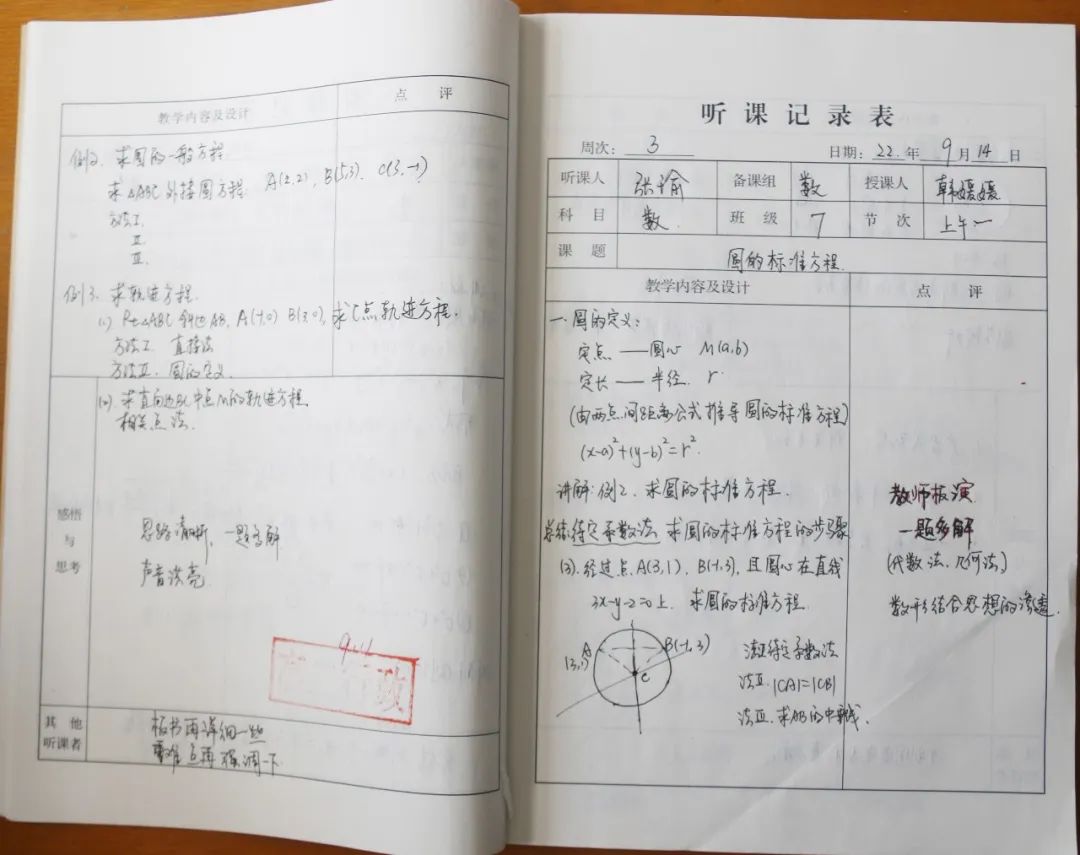 教学内容及设计
点 评
例2. 求圆的一般方程
求△ABC外接圆方程. A(2,2), B(5,3). C(3,-1)
方法I.
II.
III.
例3. 求轨迹方程.
(1) Rt△ABC 斜边AB, A(-1,0) B(3,0), 求C点轨迹方程.
方法I. 直接法
方法II. 圆的定义
(2). 求直角边BC中点M的轨迹方程
相关点法.
感悟
与
思考
思路清晰, 一题多解
声音洪亮
9.14
其 他
听课者
板书再详细一些
重难点再强调一下
听 课 记 录 表
周次: 3
日期: 22. 年 9 月 14 日
听课人 张瑜 备课组 数 授课人 韩媛媛
科 目 数 班 级 7 节 次 上午一
课 题 圆的标准方程.
教学内容及设计
点 评
一. 圆的定义:
定点 —— 圆心 M(a,b)
定长 —— 半径. r
(由两点间距离公式推导圆的标准方程)
(x-a)²+(y-b)²=r².
讲解: 例2. 求圆的标准方程.
教师板演
总结:待定系数法 求圆的标准方程的步骤
一题多解
(3). 经过点A(3,1), B(-1,3), 且圆心在直线
(代数法、几何法)
3x-y-2=0上. 求圆的标准方程.
数形结合思想的渗透.
A
(3,1)
B(-1,3)
C
法I待定系数法
法II. |CA|=|CB|
法III. 求AB的中垂线.